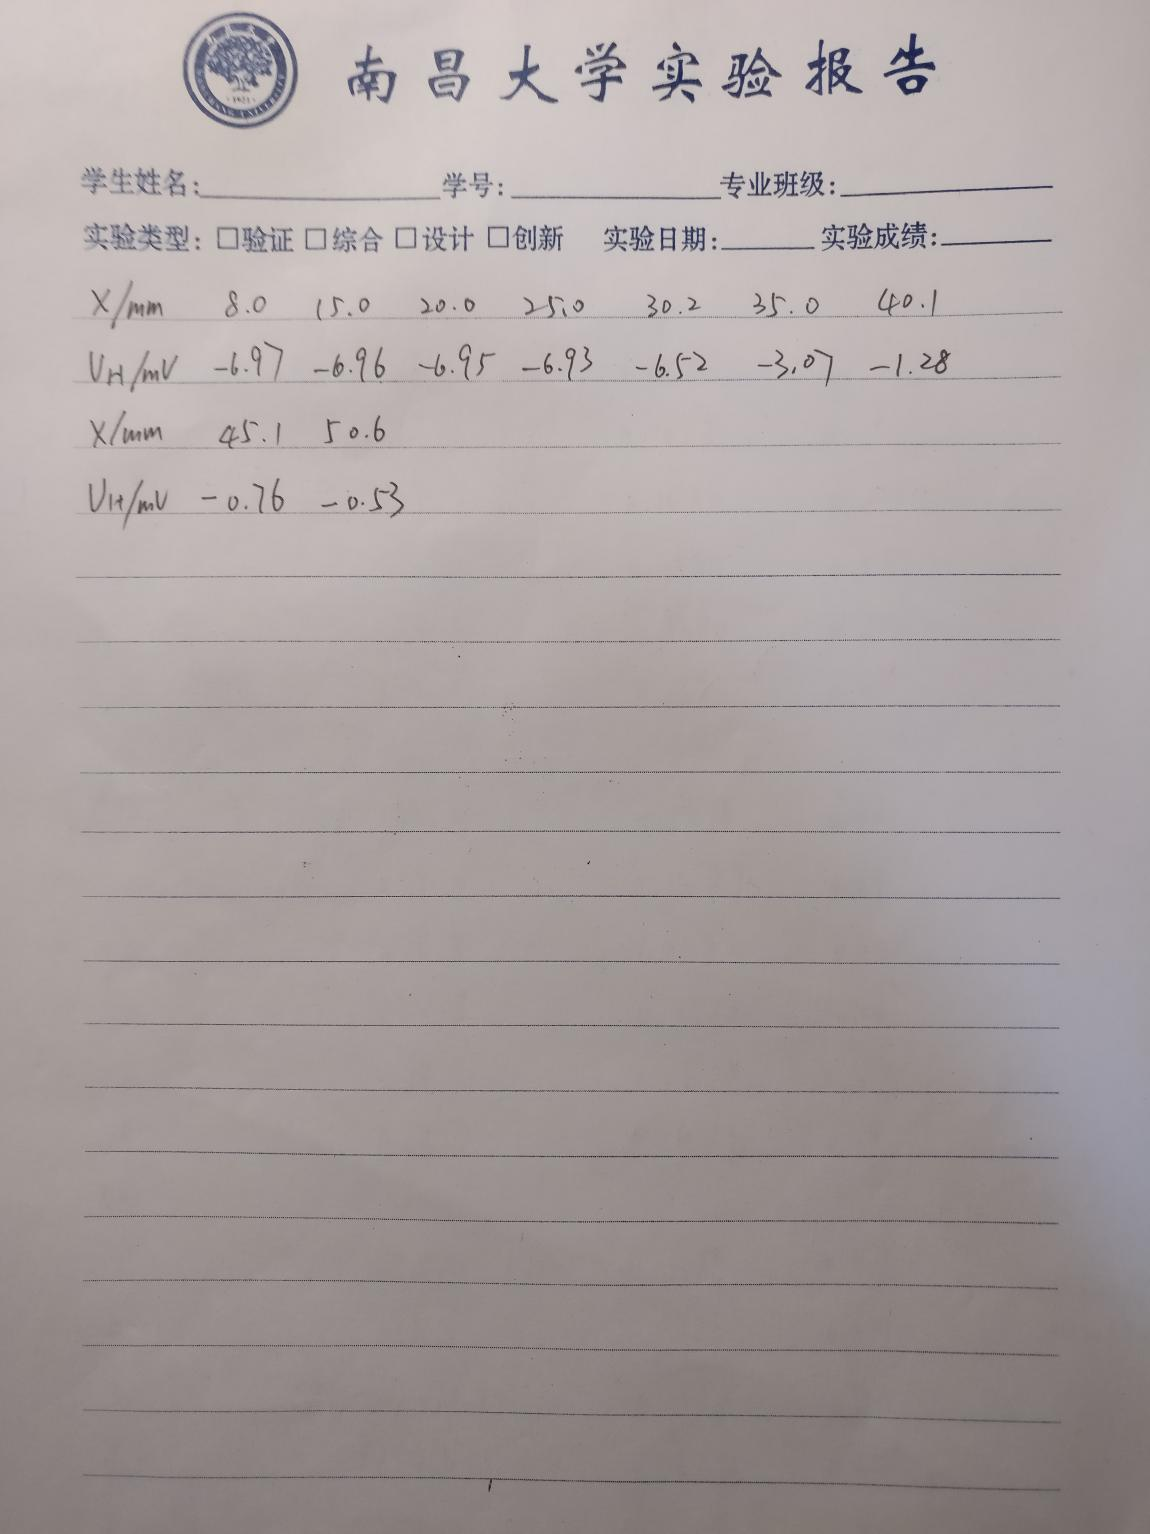 南昌大学实验报告
学生姓名: 学号: 专业班级:
实验类型: □验证 □综合 □设计 □创新 实验日期: 实验成绩:
X/mm 8.0 15.0 20.0 25.0 30.2 35.0 40.1
UH/mV -6.97 -6.96 -6.95 -6.93 -6.52 -3.07 -1.28
X/mm 45.1 50.6
UH/mV -0.76 -0.53